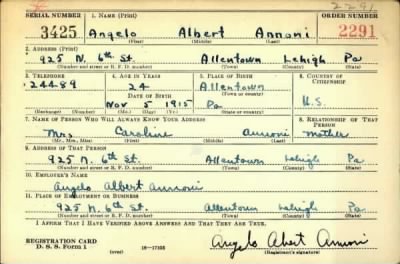 2291
SERIAL NUMBER 1. NAME (Print) ORDER NUMBER
3425 Angelo Albert Annoni 2291
(First) (Middle) (Last)
2. ADDRESS (Print)
925 N. 6th St. Allentown Lehigh Pa
(Number and street or R. F. D. number) (Town) (County) (State)
3. TELEPHONE 4. AGE IN YEARS 5. PLACE OF BIRTH 6. COUNTRY OF CITIZENSHIP
24489 24 Allentown
DATE OF BIRTH (Town or county)
Nov 5 1915 Pa U.S.
(Exchange) (Number) (Mo.) (Day) (Yr.) (State or country)
7. NAME OF PERSON WHO WILL ALWAYS KNOW YOUR ADDRESS 8. RELATIONSHIP OF THAT PERSON
Mrs. Caroline Annoni Mother
(Mr., Mrs., Miss) (First) (Middle) (Last)
9. ADDRESS OF THAT PERSON
925 N. 6th St. Allentown Lehigh Pa
(Number and street or R. F. D. number) (Town) (County) (State)
10. EMPLOYER'S NAME
Angelo Albert Annoni
11. PLACE OF EMPLOYMENT OR BUSINESS
925 N. 6th St. Allentown Lehigh Pa
(Number and street or R. F. D. number) (Town) (County) (State)
I AFFIRM THAT I HAVE VERIFIED ABOVE ANSWERS AND THAT THEY ARE TRUE.
REGISTRATION CARD
D. S. S. Form 1 (over) 16—17105 Angelo Abert Annoni
(Registrant's signature)